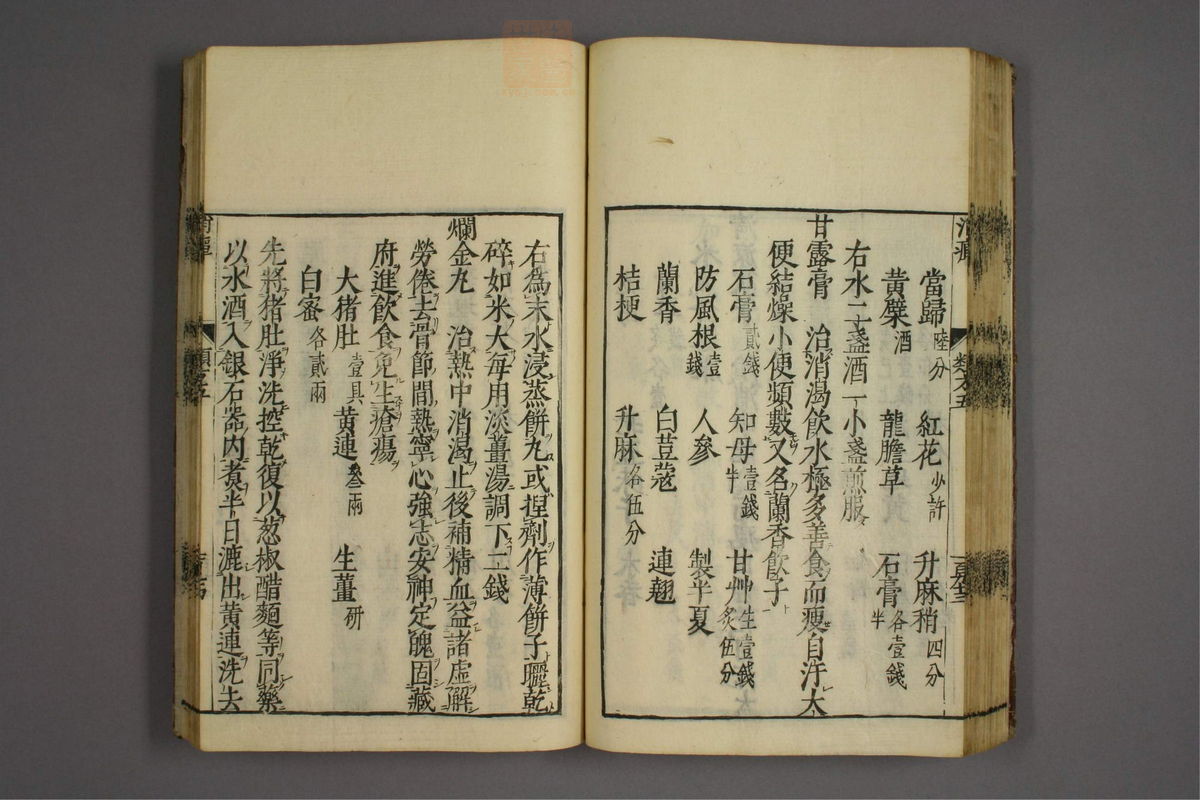 當歸陸分 紅花少許 升麻稍四分
黃檗酒 龍膽草 石膏各壹錢半
右水二盞酒一小盞煎服
甘露膏 治消渴飲水極多善食而瘦自汗大
便結燥小便頻數又名蘭香飲子
石膏貳錢 知母壹錢半 甘艸生壹錢炙伍分
防風根壹錢 人參 製半夏
蘭香 白荳蔻 連翹
桔梗 升麻各伍分
右為末水浸蒸餅丸或捏劑作薄餅子曬乾
碎如米大每用淡薑湯調下二錢
爛金丸 治熱中消渴止後補精血益諸虛解
勞倦去滑節間熱寧心強志安神定魄固藏
府進飲食免生瘡瘍
大猪肚壹具 黃連叄兩 生薑研
白蜜各貳兩
先將猪肚淨洗控乾復以葱椒醋麵等同藥
以水酒入銀石器內煮半日漉出黃連洗去